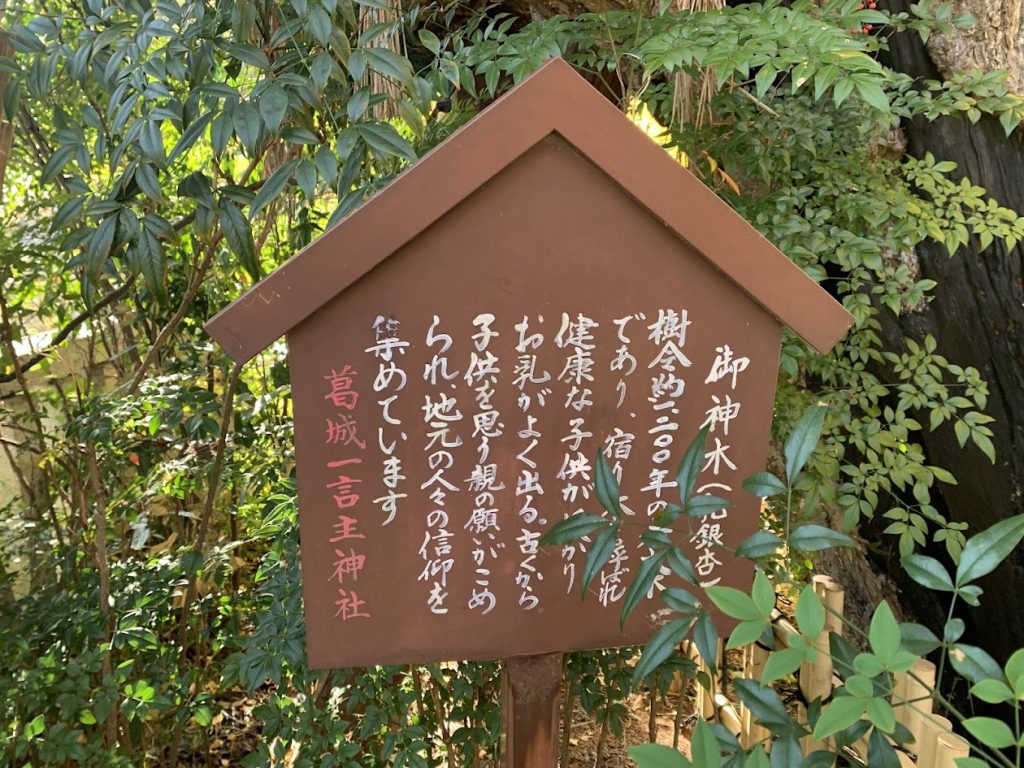 御神木(乳銀杏)
樹令約一二〇〇年の
であり、宿り木と呼ばれ
健康な子供がさずかり
お乳がよく出る。古くから
子供を思う親の願いがこめ
られ、地元の人々の信仰を
集めています
葛城一言主神社